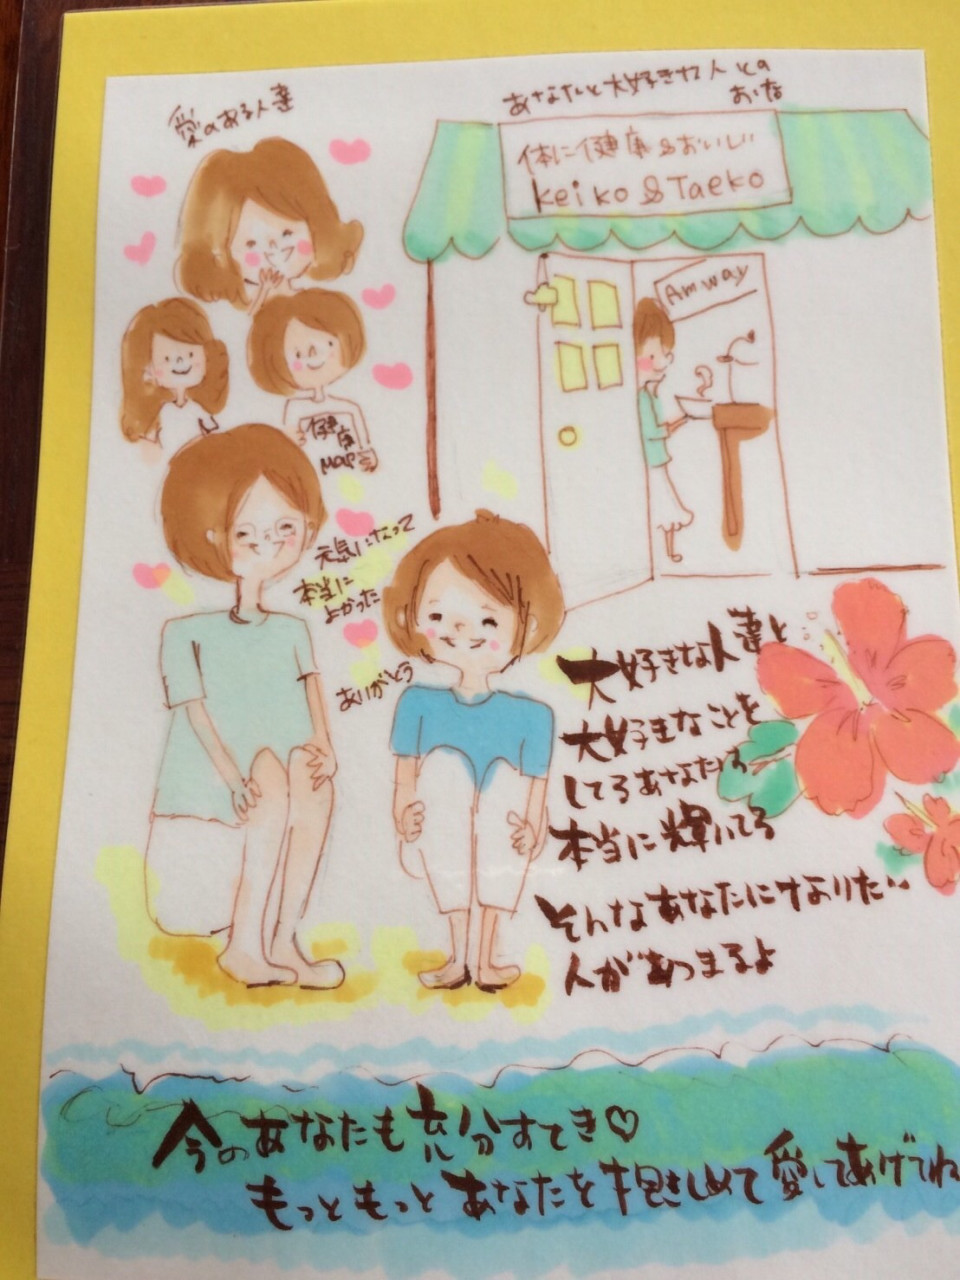 愛のある人達
あなたと大好きな人との
おみせ
体に健康&おいしい
Keiko & Taeko
Amway
健康
MAP
元気になって
本当に
よかった
ありがとう
大好きな人達と
大好きなことを
してるあなたが
本当に輝いてる
そんなあなたになりたい
人があつまるよ
今のあなたも充分すてき♡
もっともっとあなたを抱きしめて愛してあげてね